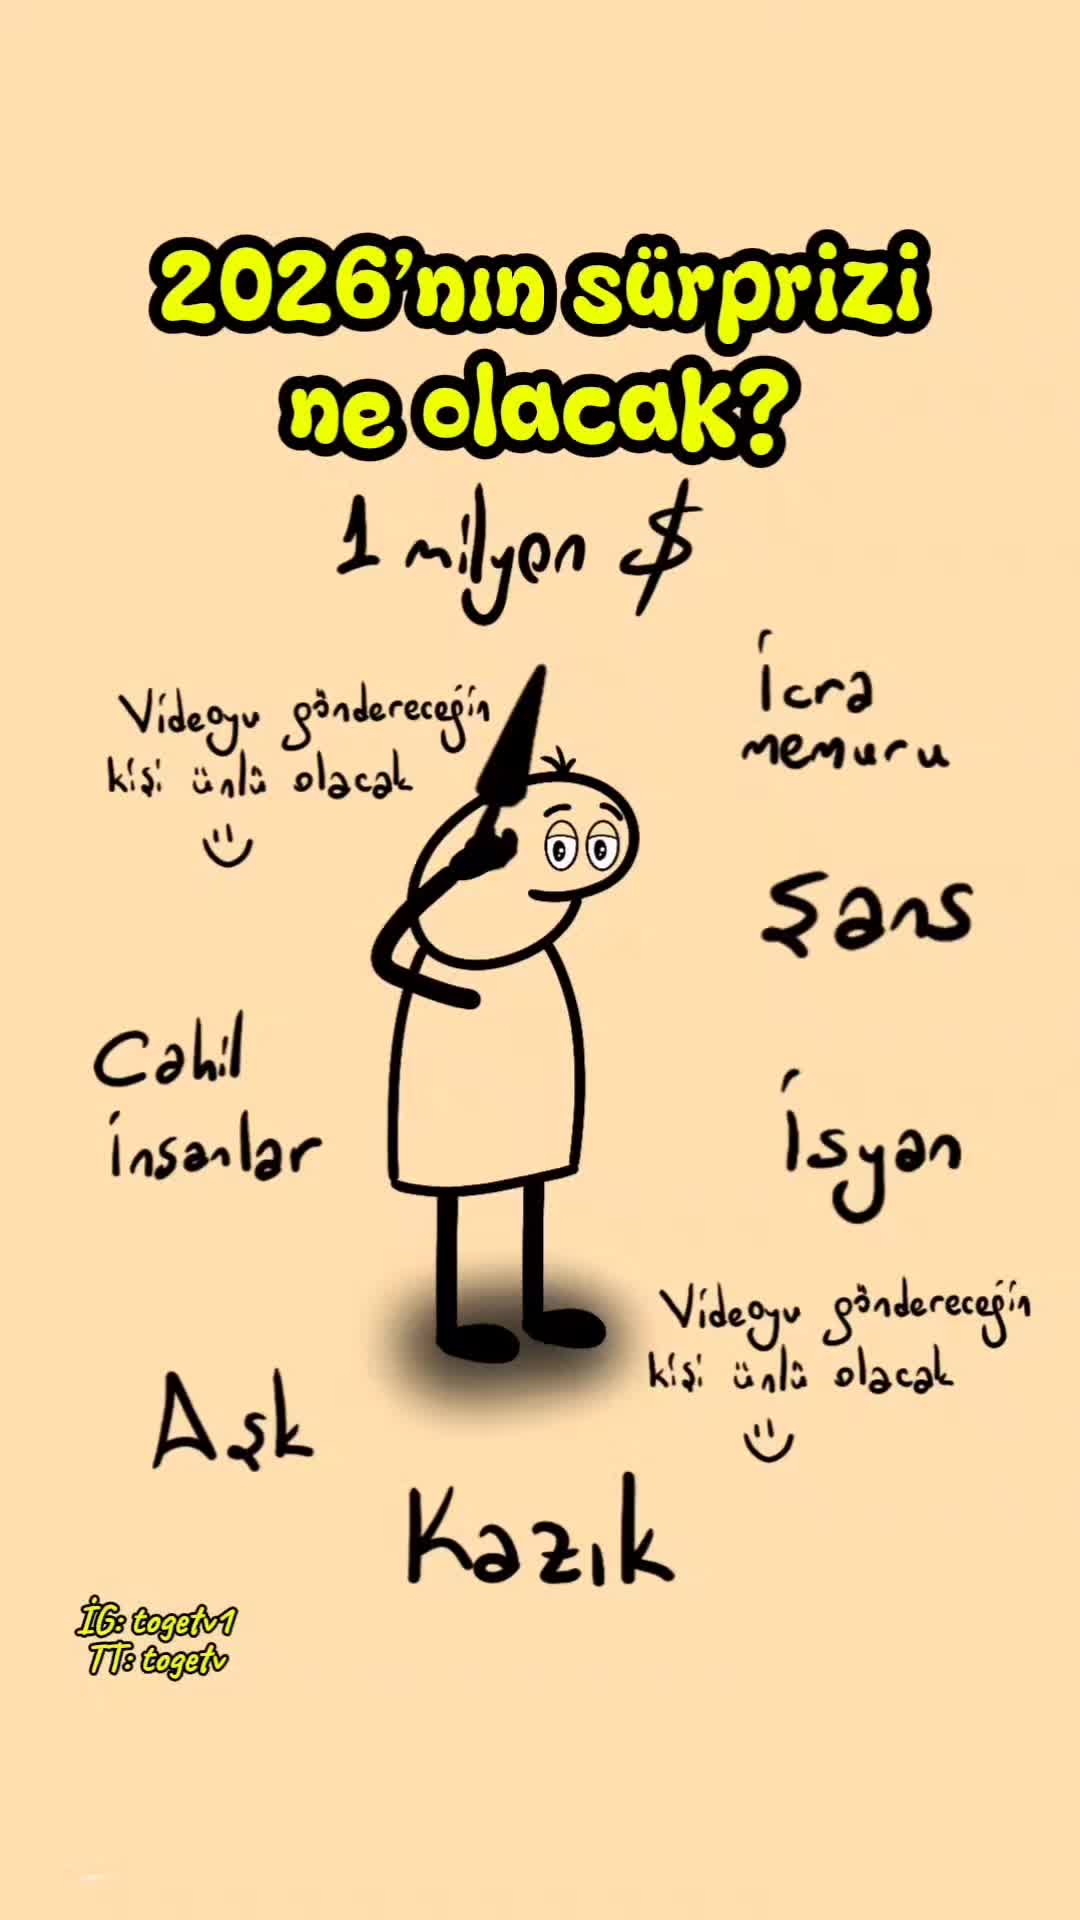 2026'nın sürprizi
ne olacak?
1 milyon $
Videoyu göndereceğin
kişi ünlü olacak
İcra
memuru
Şans
Cahil
insanlar
İsyan
Videoyu göndereceğin
kişi ünlü olacak
Aşk
Kazık
İG: togetv1
TT: togetv